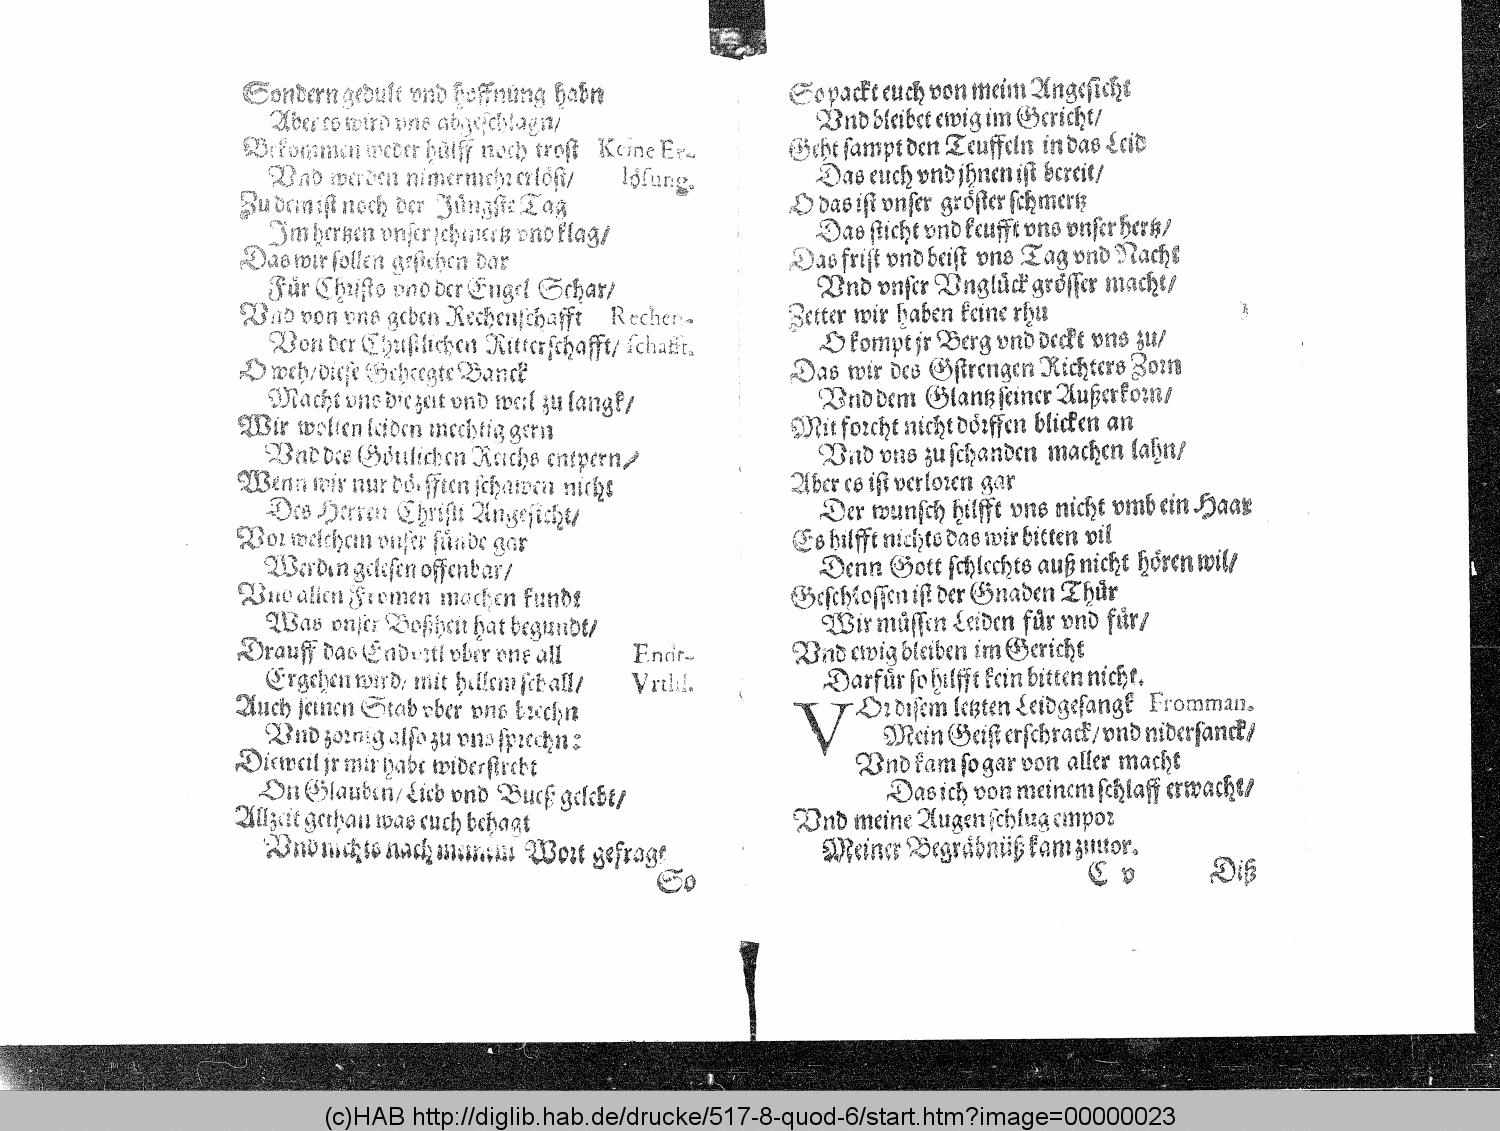 Sondern gedult vnd hoffnung habn
Aber es wird vns abgeschlagn/
Bekommen weder hülff noch trost
Keine Er-
Vnd werden nimermehr erlöst/
lösung.
Zu dem ist noch der Jüngste Tag
Im hertzen vnser schmertz vnd klag/
Das wir sollen gestehen dar
Für Christo vnd der Engel Schar/
Vnd von vns geben Rechenschafft
Rechen-
Von der Christlichen Ritterschafft/
schafft.
O weh/ diese Geheegte Banck
Macht vns die zeit vnd weil zu langk/
Wir wolten leiden mechtig gern
Vnd des Göttlichen Reichs entpern/
Wenn wir nur dörfften schawen nicht
Des Herren Christi Angesicht/
Vor welchem vnser sünde gar
Werden gelesen offenbar/
Vnd allen Fromen machen kundt
Was vnser Boßheit hat begundt/
Drauff das Endvrtl vber vns all
Endt-
Ergehen wird/ mit hellem schall/
Vrthl.
Auch seinen Stab vber vns brechn
Vnd zornig also zu vns sprechn:
Dieweil jr mir habt widerstrebt
On Glauben/ Lieb vnd Bueß gelebt/
Allzeit gethan was euch behagt
Vnd nichts nach meinem Wort gefragt
So
So packt euch von meim Angesicht
Vnd bleibet ewig im Gericht/
Geht sampt den Teuffeln in das Leid
Das euch vnd jhnen ist bereit/
O das ist vnser gröster schmertz
Das sticht vnd keufft vns vnser hertz/
Das frist vnd beist vns Tag vnd Nacht
Vnd vnser Vnglück grösser macht/
Zetter wir haben keine rhu
O kompt jr Berg vnd deckt vns zu/
Das wir des Gstrengen Richters Zorn
Vnd dem Glantz seiner Außerkorn/
Mit forcht nicht dörffen blicken an
Vnd vns zu schanden machen lahn/
Aber es ist verloren gar
Der wunsch hilfft vns nicht vmb ein Haar
Es hilfft nichts das wir bitten vil
Denn Gott schlechts auß nicht hören wil/
Geschlossen ist der Gnaden Thür
Wir müssen Leiden für vnd für/
Vnd ewig bleiben im Gericht
Darfür so hilfft kein bitten nicht.
VOr disem letzten Leidgesangk
Fromman.
Mein Geist erschrack/ vnd nidersanck/
Vnd kam so gar von aller macht
Das ich von meinem schlaff erwacht/
Vnd meine Augen schlug empor
Meiner Begräbnüß kam zuuor.
C v
Diß
(c)HAB http://diglib.hab.de/drucke/517-8-quod-6/start.htm?image=00000023